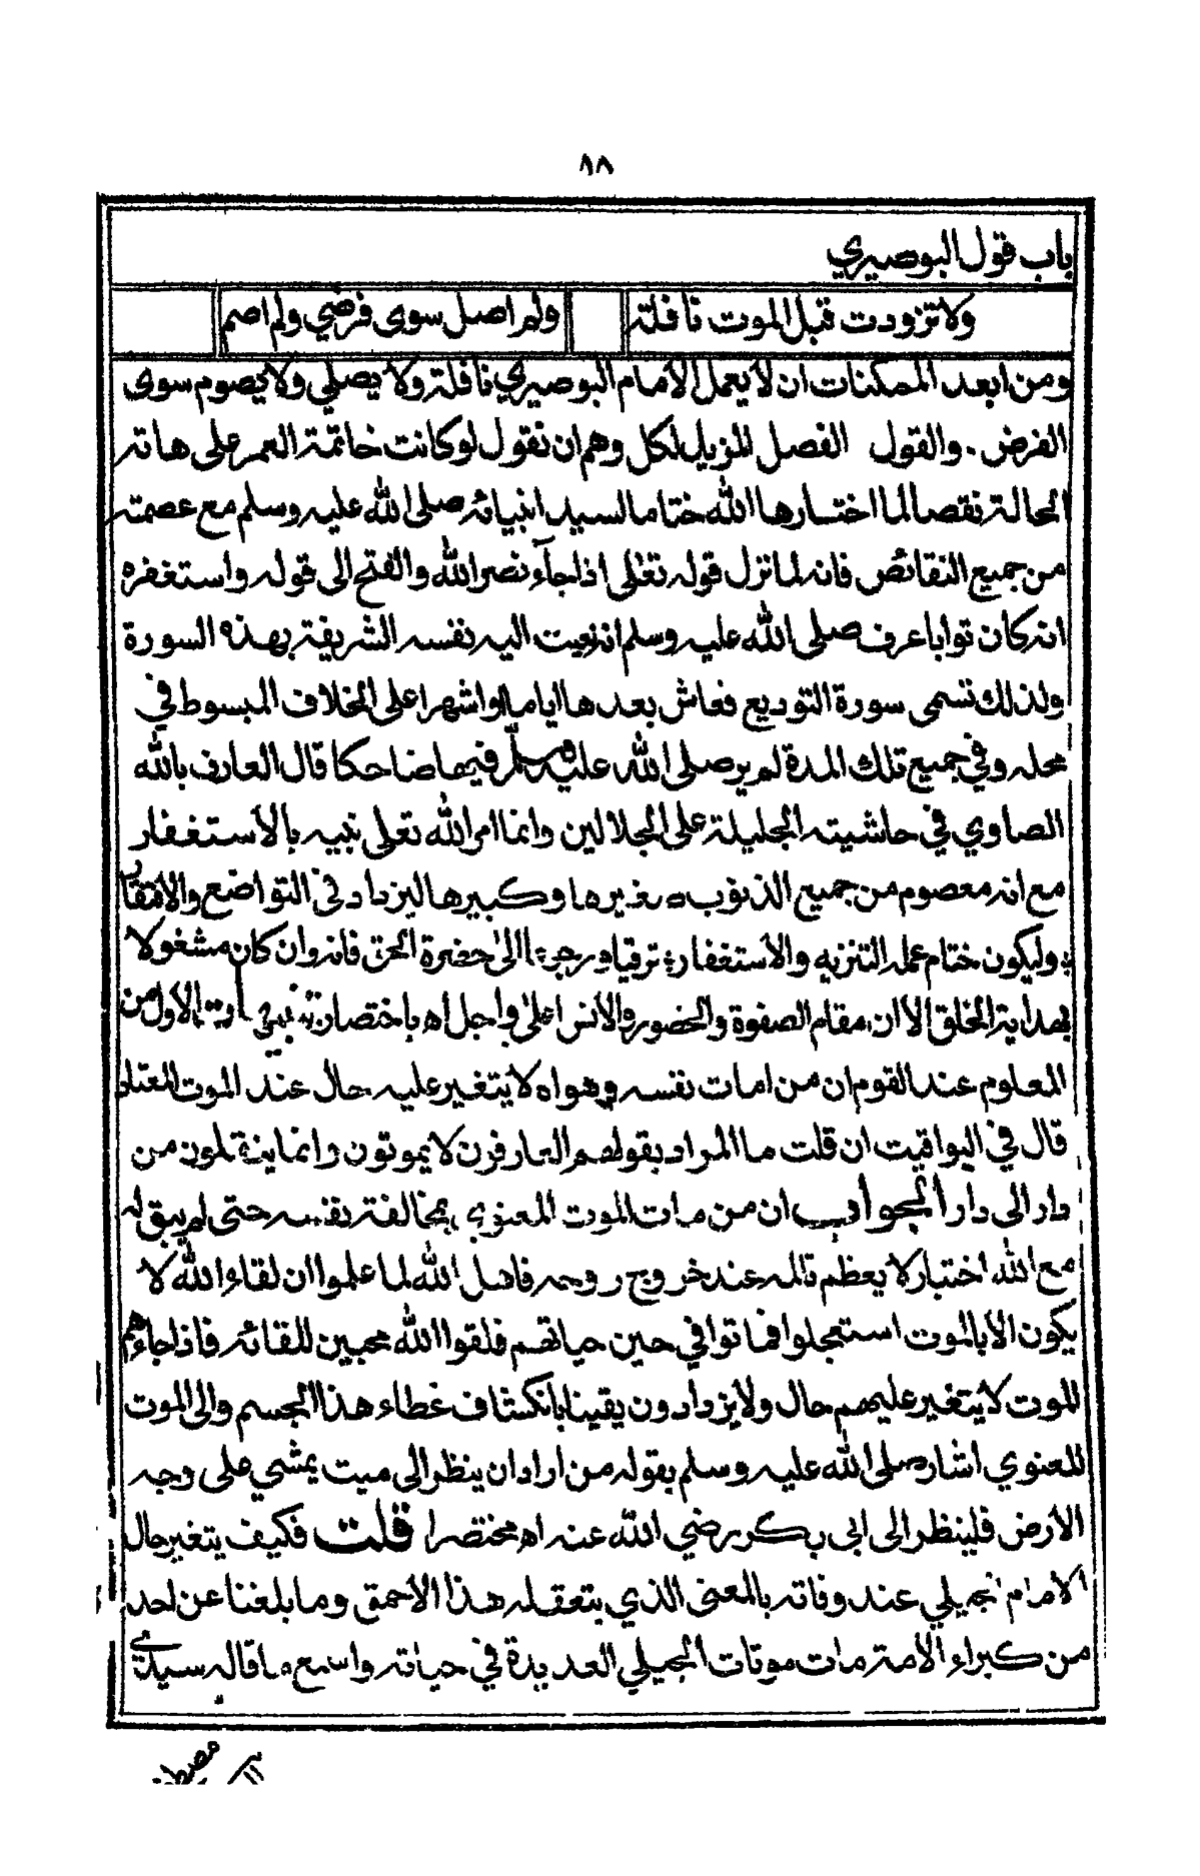 ١٨
باب قول البوصيري
ولا تزودت قبل الموت نافلة ولم اصل سوى فرضي ولم اصم
ومن ابعد الممكنات ان لا يعمل الامام البوصيري نافلة ولا يصلي ولا يصوم سوى
الفرض . والقول الفصل المزيل لكل وهم ان نقول لو كانت خاتمة العمر على هاته
الحالة نقصا لما اختارها الله ختاما لسيد انبيائه صلى الله عليه وسلم مع عصمته
من جميع النقائص فانه لما نزل قوله تعلى اذا جاء نصر الله والفتح الى قوله واستغفره
انه كان توابا عرف صلى الله عليه وسلم انه نعيت اليه نفسه الشريفة بهذه السورة
ولذلك تسمى سورة التوديع فعاش بعدها اياما او اشهرا على الخلاف المبسوط في
محله وفي جميع تلك المدة لم ير صلى الله عليه وسلم فيها ضاحكا قال العارف بالله
الصاوي في حاشيته الجليلة على الجلالين وانما امر الله تعلى نبيه بالاستغفار
مع انه معصوم من جميع الذنوب صغيرها وكبيرها ليزداد في التواضع والافتقار
وليكون ختام عمله التنزيه والاستغفار ترقيا ورجوعا الى حضرة الحق فانه وان كان مشغولا
بهداية الخلق الا ان مقام الصفوة والحضور والانس اعلى واجل اه باختصار تنبيهات الاول من
المعلوم عند القوم ان من امات نفسه وهواه لا يتغير عليه حال عند الموت المعتاد
قال في اليواقيت ان قلت ما المراد بقولهم العارفون لا يموتون وانما ينقلون من
دار الى دار الجواب ان من مات الموت المعنوي بمخالفة نفسه حتى لم يبق له
مع الله اختبار لا يعظم تالمه عند خروج روحه فاهل الله لما علموا ان لقاء الله لا
يكون الا بالموت استعجلوا فماتوا في حين حياتهم فلقوا الله محبين للقائه فاذا جاءهم
الموت لا يتغير عليهم حال ولا يزدادون يقينا بانكشاف غطاء هذا الجسم والى الموت
المعنوي اشار صلى الله عليه وسلم بقوله من اراد ان ينظر الى ميت يمشي على وجه
الارض فلينظر الى ابي بكر رضي الله عنه اه مختصرا قلت فكيف يتغير حال
الامام الجيلي عند وفاته بالمعنى الذي يتعقله هذا الاحمق وما بلغنا عن احد
من كبراء الامة مات موتات الجيلي العديدة في حياته واسمع ما قاله سيدي
مصطفى